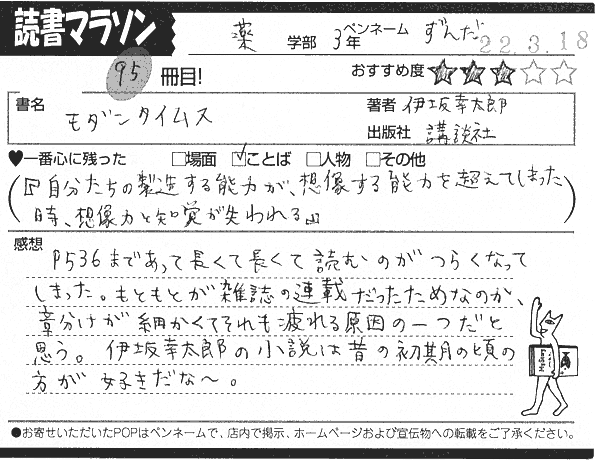 読書マラソン
薬 学部 3年 ペンネーム ずんだ
22.3.18
95 冊目!
おすすめ度 ★★★☆☆
書名 モダンタイムス
著者 伊坂幸太郎
出版社 講談社
♥一番心に残った □場面 ☑ことば □人物 □その他
(『自分たちの製造する能力が、想像する能力を超えてしまった
時、想像力と知覚が失われる』)
感想
P536まであって長くて長くて読むのがつらくなって
しまった。もともとが雑誌の連載だったためなのか、
章分けが細かくてそれも疲れる原因の一つだと
思う。伊坂幸太郎の小説は昔の初期の頃の
方が好きだな〜。
●お寄せいただいたPOPはペンネームで、店内で掲示、ホームページおよび宣伝物への転載をご了承ください。